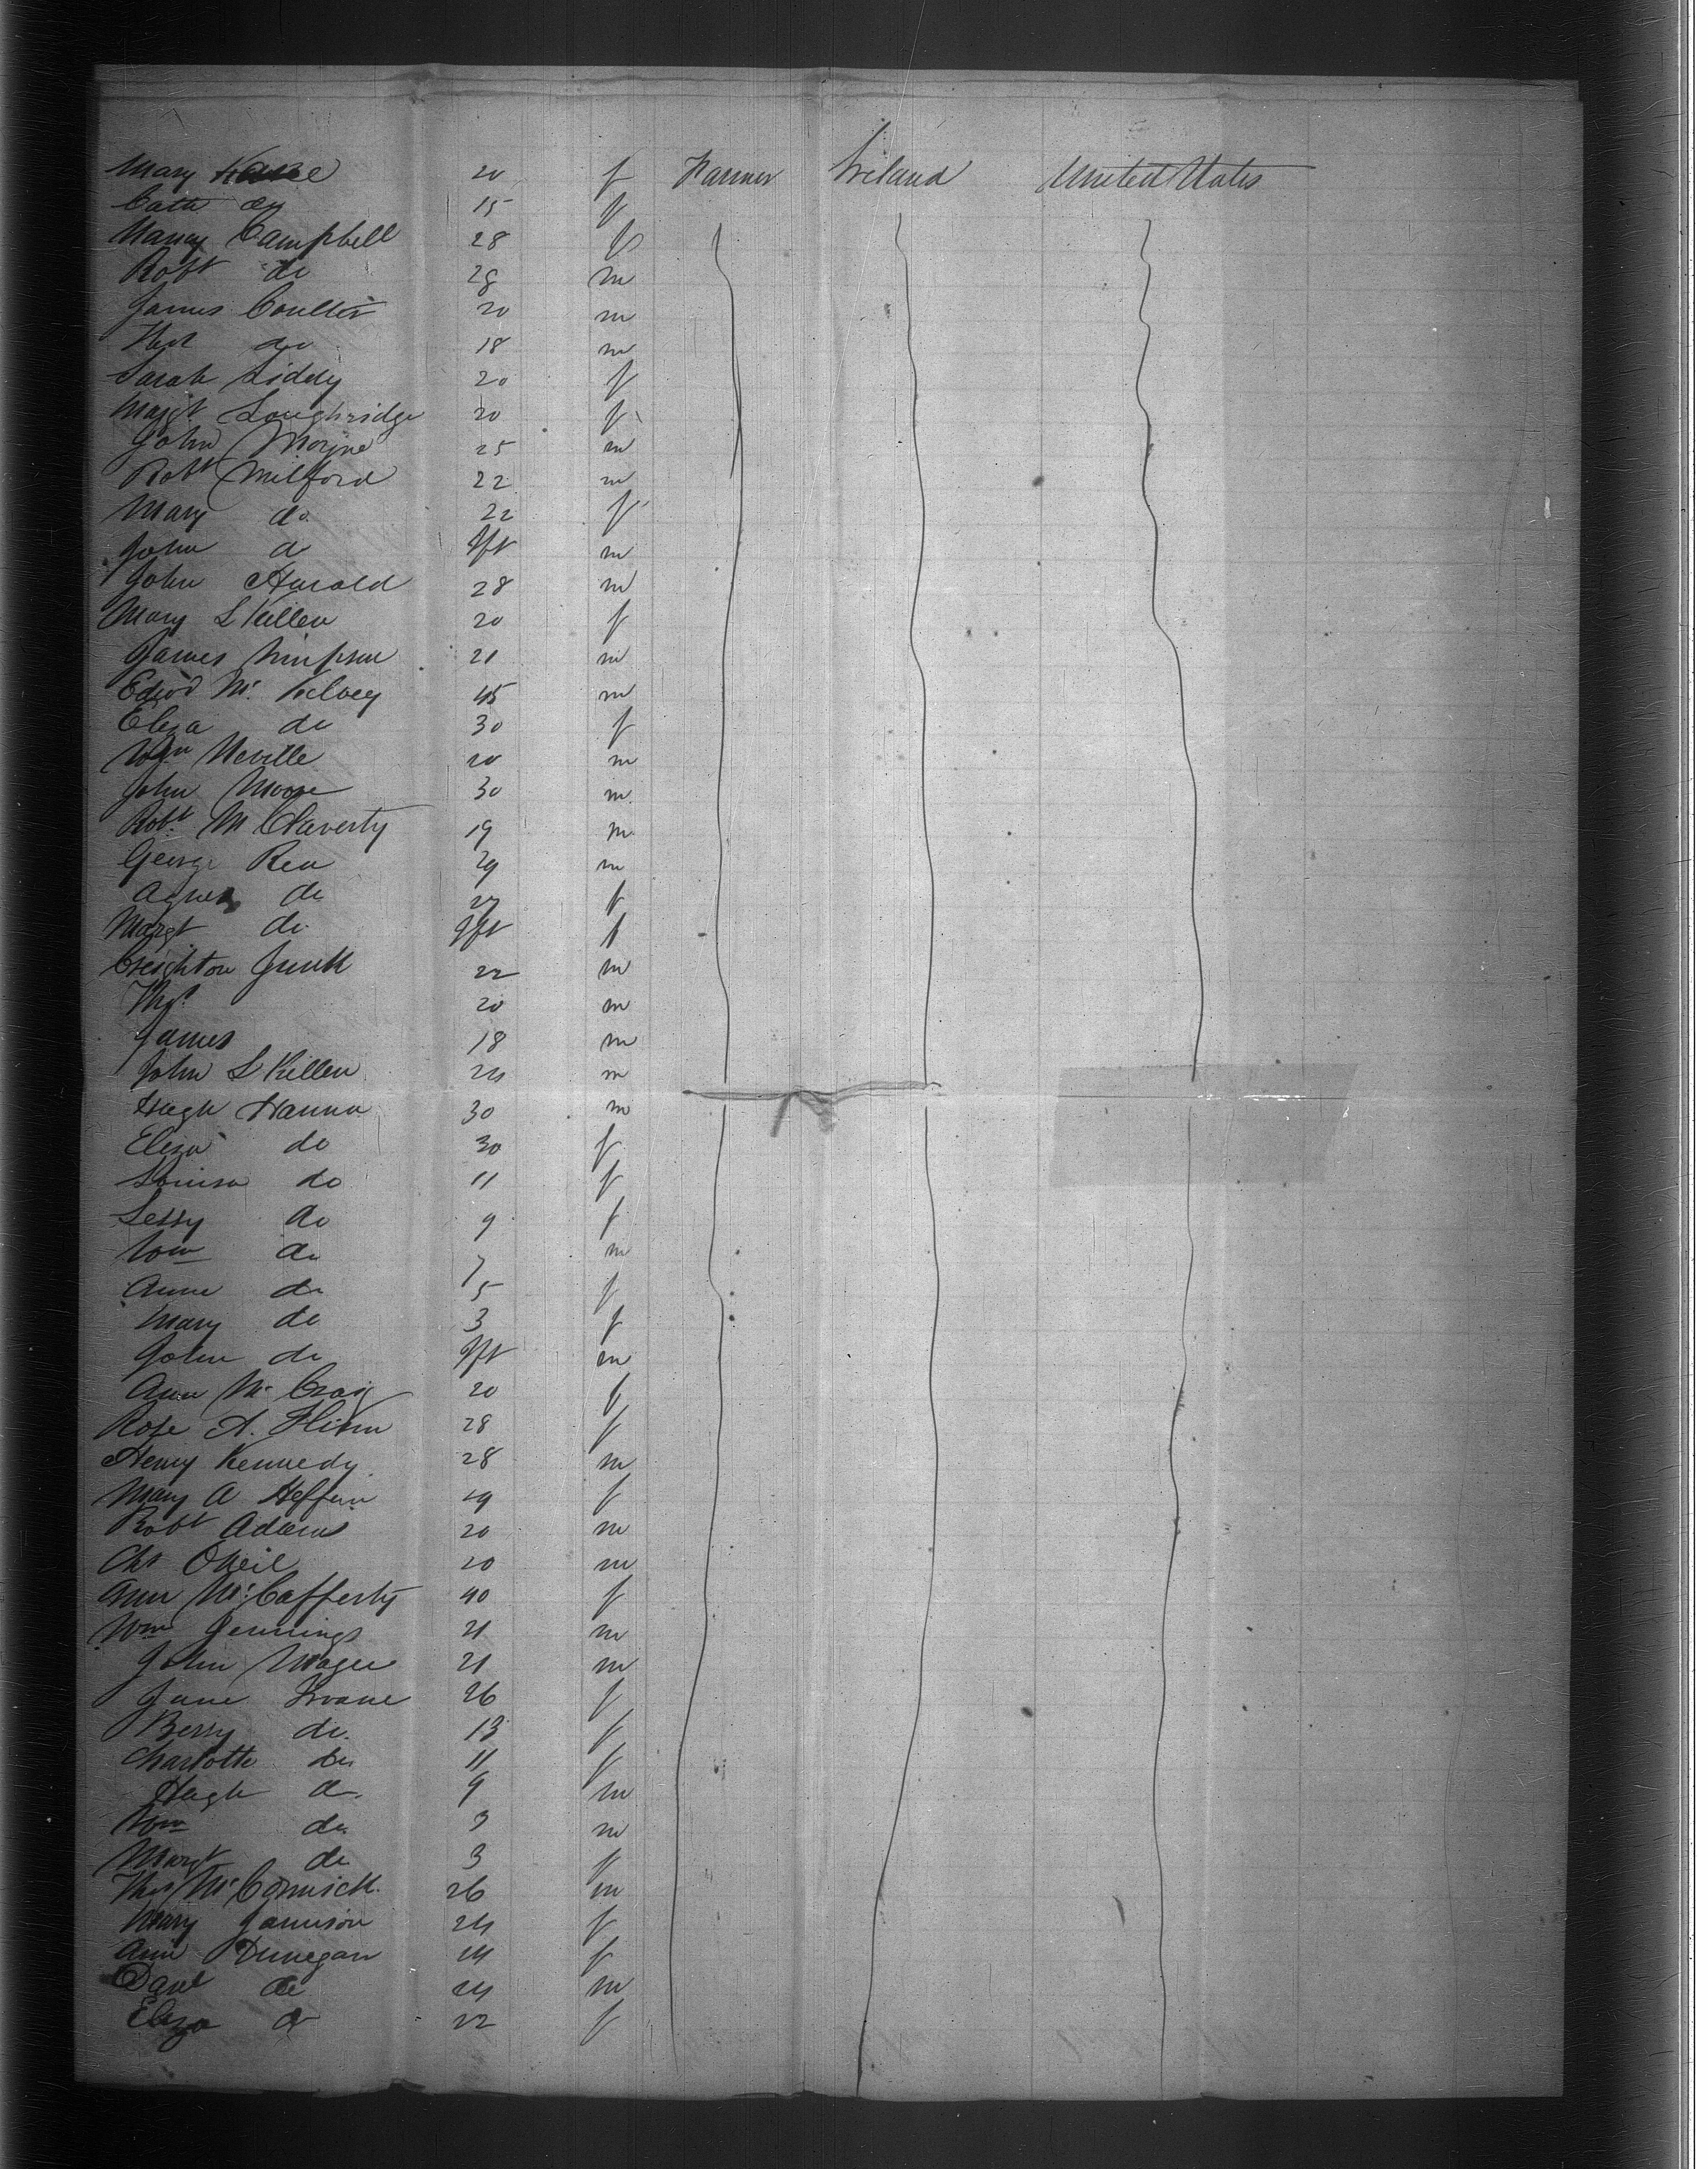 Mary 20 f Farmer Ireland United States
Cath do 15 f
Nancy Campbell 28 f
Robt do 28 m
James Coulter 20 m
do 18 m
Sarah Liddy 20 f
Margt Loughridge 20 f
John Moyne 25 m
Robt Milford 22 m
Mary do 22 f
John do Ift m
John Harold 28 m
Mary L Killen 20 f
James Simpson 21 m
Edwd Mc Kelvey 45 m
Eliza do 30 f
Wm Neville 20 m
John Moore 30 m
Robt Mc Claverty 19 m
George Rea 29 m
Agnes do 27 f
Margt do Ift f
Creighton Junk 22 m
Thos. 20 m
James 18 m
John L Killen 24 m
Hugh Hanna 30 m
Eliza do 30 f
Louisa do 11 f
Letty do 9 f
Wm do 7 m
Anne do 5 f
Mary do 3 f
John do Ift m
Ann Mc Craig 20 f
Rose A. Flinn 28 f
Henry Kennedy 28 m
Mary A Heffern 19 f
Robt Adams 20 m
Chs ONeil 20 m
Ann Mc Cafferty 40 f
Wm Jennings 21 m
John Magee 21 m
Jane 26 f
Bessy do. 13 f
Charlotte do 11 f
Hugh do. 9 m
Wm do. m
Margt do 3 f
Thos Mc Cormick 26 m
Mary Jamison 24 f
Ann Dunegan 24 f
Danl do 24 m
Eliza do 22 f